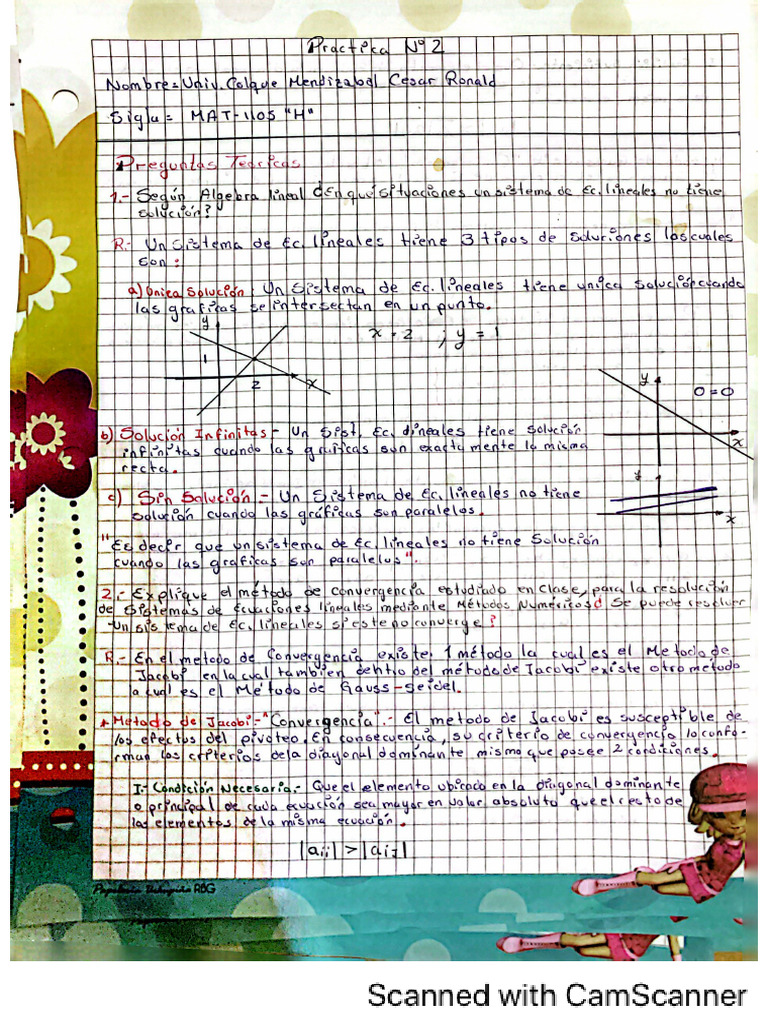 Practica Nº 2
Nombre = Univ. Colque Mendizabal Cesar Ronald
Sigla = MAT-1105 "H"
Preguntas Teoricas
1.- Según Algebra lineal ¿En qué situaciones un sistema de Ec. lineales no tiene
solución?
R.- Un Sistema de Ec. lineales tiene 3 tipos de soluciones las cuales
son:
a) Unica Solución: Un Sistema de Ec. lineales tiene unica solución cuando
las graficas se intersectan en un punto.
y
x = 2 ; y = 1
1
2
x
y
0 = 0
x
b) Solución Infinitas - Un Sist. Ec. lineales tiene solución
infinitas cuando las graficas son exactamente la misma
recta.
y
c) Sin Solución.- Un Sistema de Ec. lineales no tiene
solución cuando las gráficas son paralelas.
x
"Es decir que un sistema de Ec. lineales no tiene Solución
cuando las graficas son paralelas".
2.- Explique el método de convergencia estudiado en clase, para la resolución
de sistemas de Ecuaciones lineales mediante Métodos Numéricos ¿ Se puede resolver
un sistema de Ec. lineales si este no converge?
R.- En el metodo de Convergencia existe: 1 método la cual es el Metodo de
Jacobi en la cual tambien dentro del método de Jacobi existe otro metodo
la cual es el Método de Gauss-Seidel.
* Metodo de Jacobi- "Convergencia".- El metodo de Jacobi es susceptible de
los efectos del pivoteo. En consecuencia, su criterio de convergencia lo confor-
man los criterios de la diagonal dominante mismo que posee 2 condiciones.
I.- Condición Necesaria.- Que el elemento ubicado en la diagonal dominante
o principal de cada ecuación sea mayor en valor absoluto que el resto de
los elementos de la misma ecuación.
|aii| > |aij|
RBG
Scanned with CamScanner